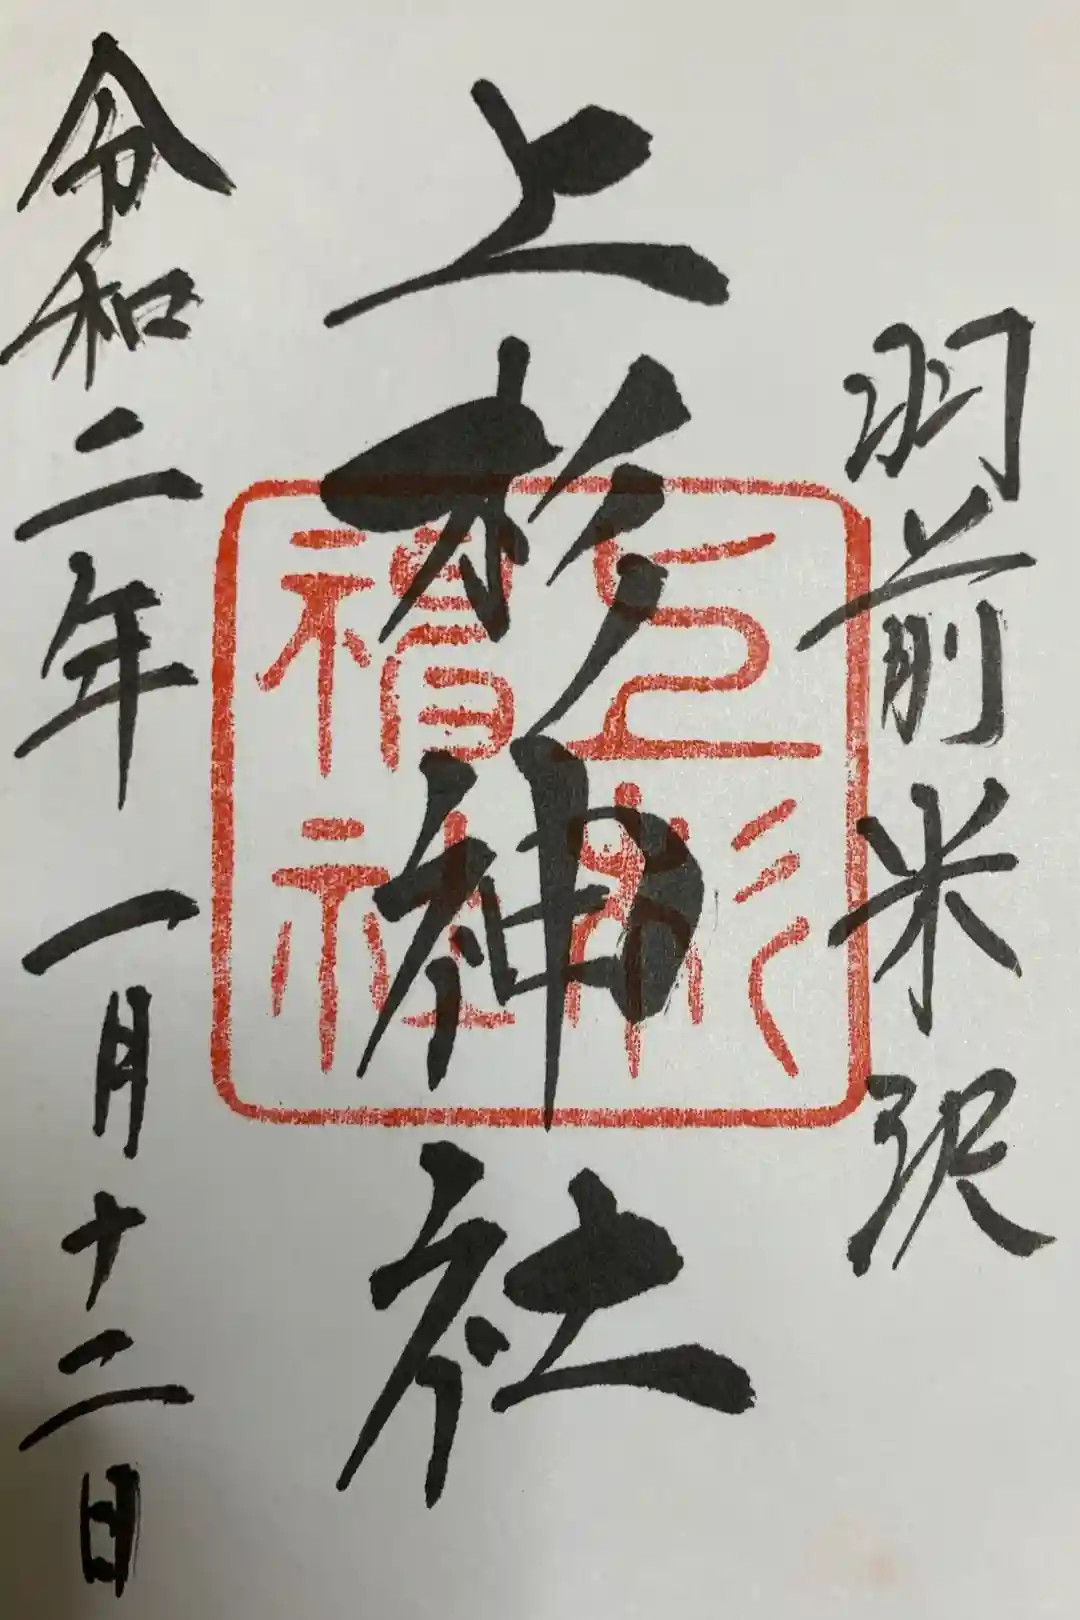 羽前米沢
上杉神社
上杉神社
令和二年一月十二日